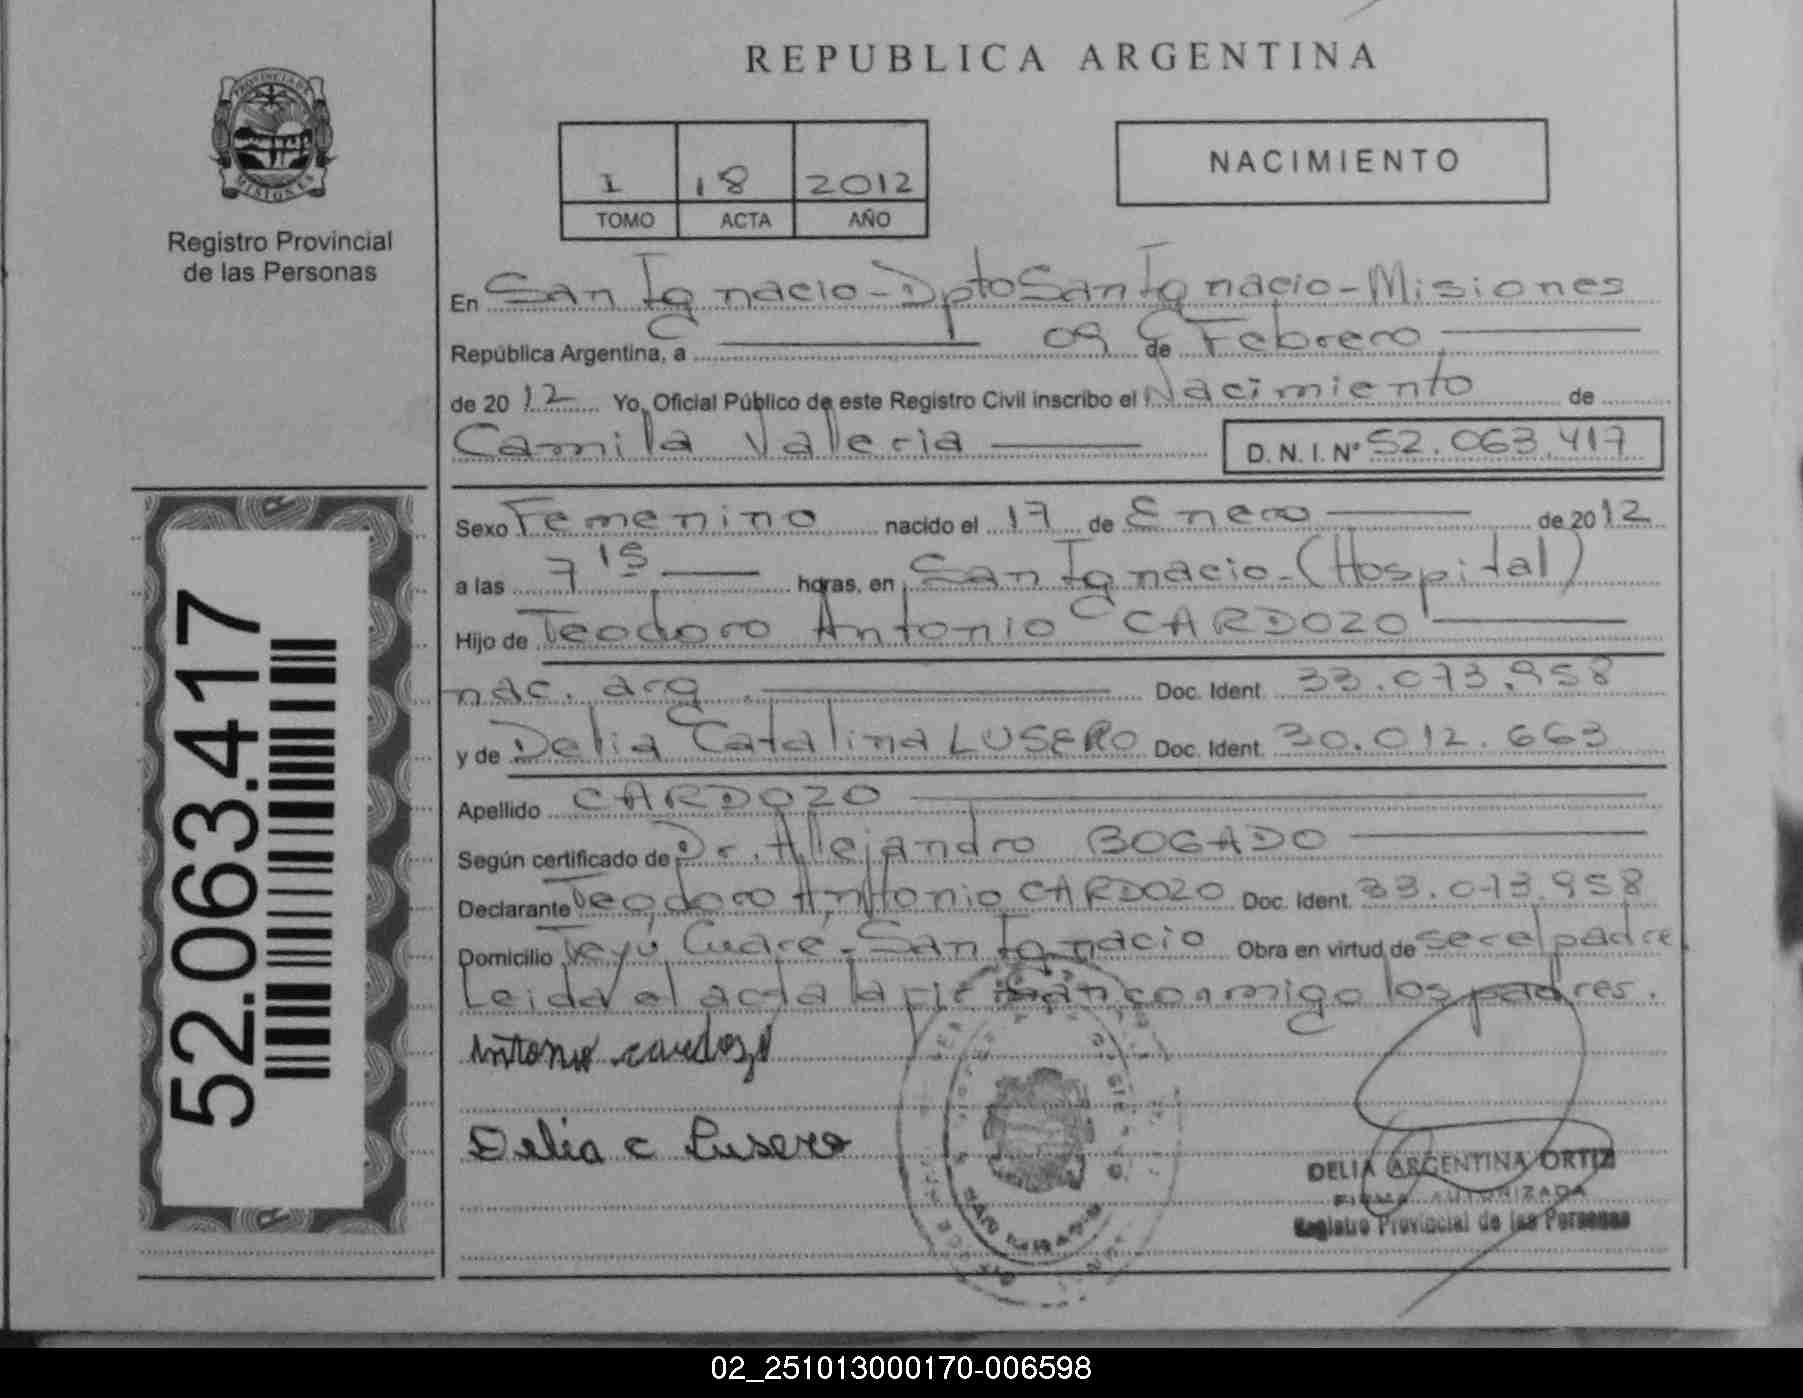 REPUBLICA ARGENTINA
PROVINCIA DE
MISIONES
Registro Provincial
de las Personas
I 18 2012
TOMO ACTA AÑO
NACIMIENTO
En San Ignacio - Dpto San Ignacio - Misiones
República Argentina, a 09 de Febrero
de 2012 Yo, Oficial Público de este Registro Civil inscribo el Nacimiento de
Camila Valeria D. N. I. Nº 52.063.417
Sexo Femenino nacido el 17 de Enero de 2012
a las 7 15 horas, en San Ignacio - (Hospital)
Hijo de Teodoro Antonio CARDOZO
nac. arg. Doc. Ident. 33.073.958
y de Delia Catalina LUSERO Doc. Ident. 30.012.663
Apellido CARDOZO
Según certificado de Dr. Allejandro BOGADO
Declarante Teodoro Antonio CARDOZO Doc. Ident. 33.073.958
Domicilio Teyú Cuaré - San Ignacio Obra en virtud de ser el padre
Leida el acta la firman conmigo los padres.
Antonio cardozo
Delia c Lusero
DELIA ARGENTINA ORTIZ
FIRMA AUTORIZADA
Registro Provincial de las Personas
52.063.417
02_251013000170-006598